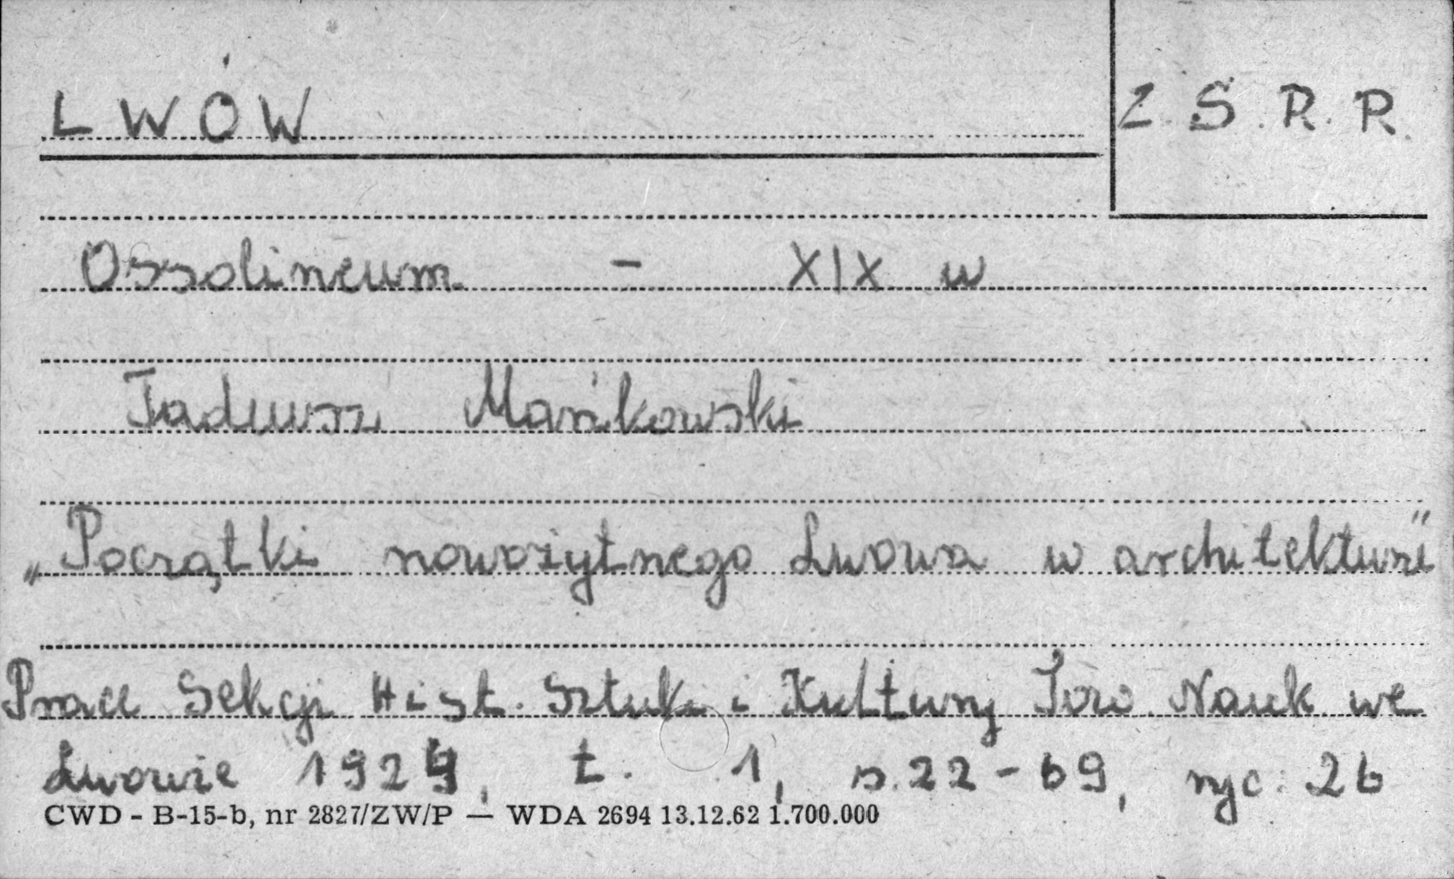 LWÓW
Z.S.R.R.
Ossolineum - XIX w
Tadeusz Mańkowski
„Początki nowożytnego Lwowa w architekturze"
Prace Sekcji Hist. Sztuki i Kultury Tow. Nauk we
Lwowie 1924, t. 1, s. 22-69, ryc. 26
CWD - B-15-b, nr 2827/ZW/P — WDA 2694 13.12.62 1.700.000